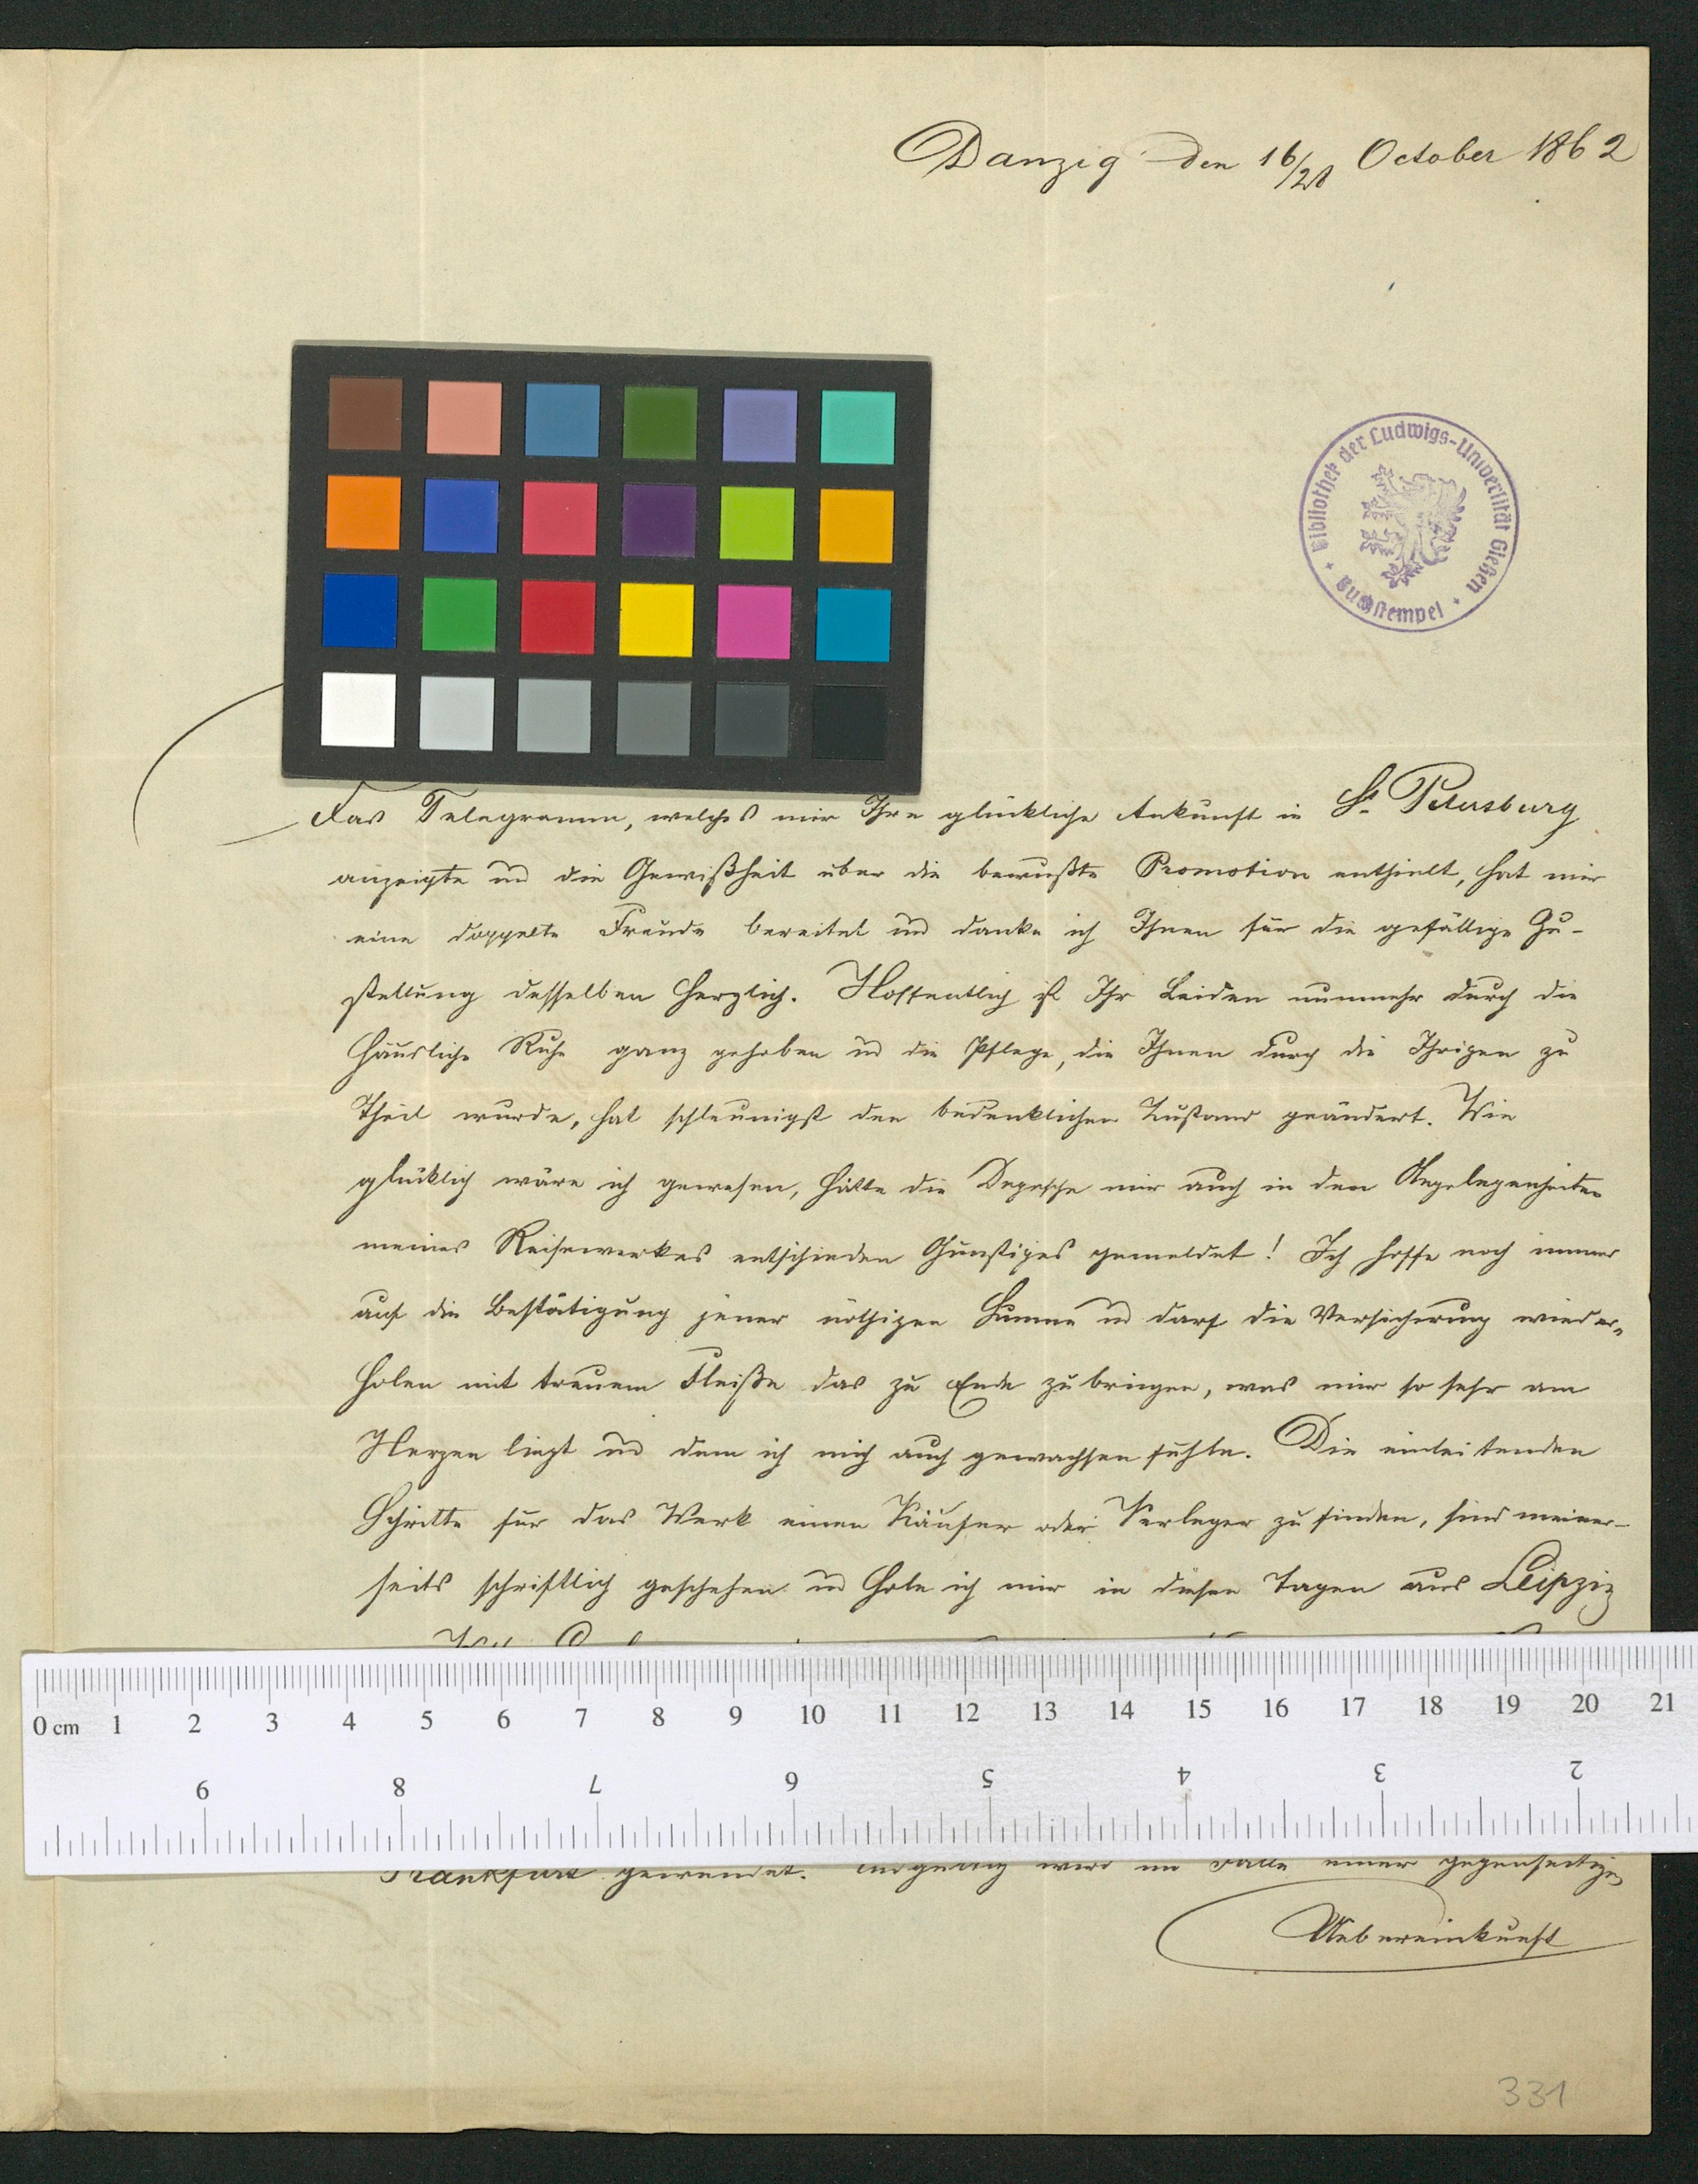 Danzig den 16/28 October 1862
Bibliothek der Ludwigs-Universität Gießen
Buchstempel
Das Telegramm, welches mir Ihre glückliche Ankunft in St. Petersburg
anzeigte und die Gewißheit über die bewußte Promotion enthielt, hat mir
eine doppelte Freude bereitet und danke ich Ihnen für die gefällige Zu-
stellung desselben herzlich. Hoffentlich ist Ihr Leiden nunmehr durch die
häusliche Ruhe ganz gehoben und die Pflege, die Ihnen durch die Ihrigen zu
Theil wurde, hat schleunigst den bedenklichen Zustand geändert. Wie
glücklich wäre ich gewesen, hätte die Depesche mir auch in den Angelegenheiten
meines Reisewerkes entschieden Günstiges gemeldet! Ich hoffe noch immer
auf die Bestätigung jener nöthigen Summe und darf die Versicherung wieder-
holen mit treuem Fleiße das zu Ende zu bringen, was mir so sehr am
Herzen liegt und dem ich mich auch gewachsen fühle. Die einleitenden
Schritte für das Werk einen Käufer oder Verleger zu finden, sind meiner-
seits schriftlich geschehen und hole ich mir in diesen Tagen aus Leipzig
0 cm 1 2 3 4 5 6 7 8 9 10 11 12 13 14 15 16 17 18 19 20 21
9 8 7 6 5 4 3 2
Frankfurt gewendet. Endgültig wird im Falle einer gegenseitigen
Uebereinkunft
331